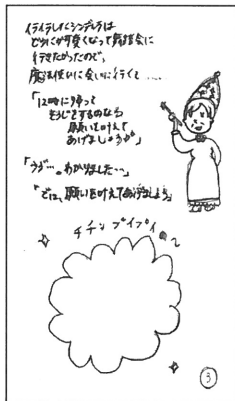 イライラしたシンデレラは
とびきり可愛くなって舞踏会に
行きたかったので、
魔法使いに会いに行くて....
「12時に帰って
そうじをするのなら
願いを叶えて
あげましょう」
「うぅ…。わかりました…」
「では、願いを叶えてあげましょう」
チチンプイプイ
3